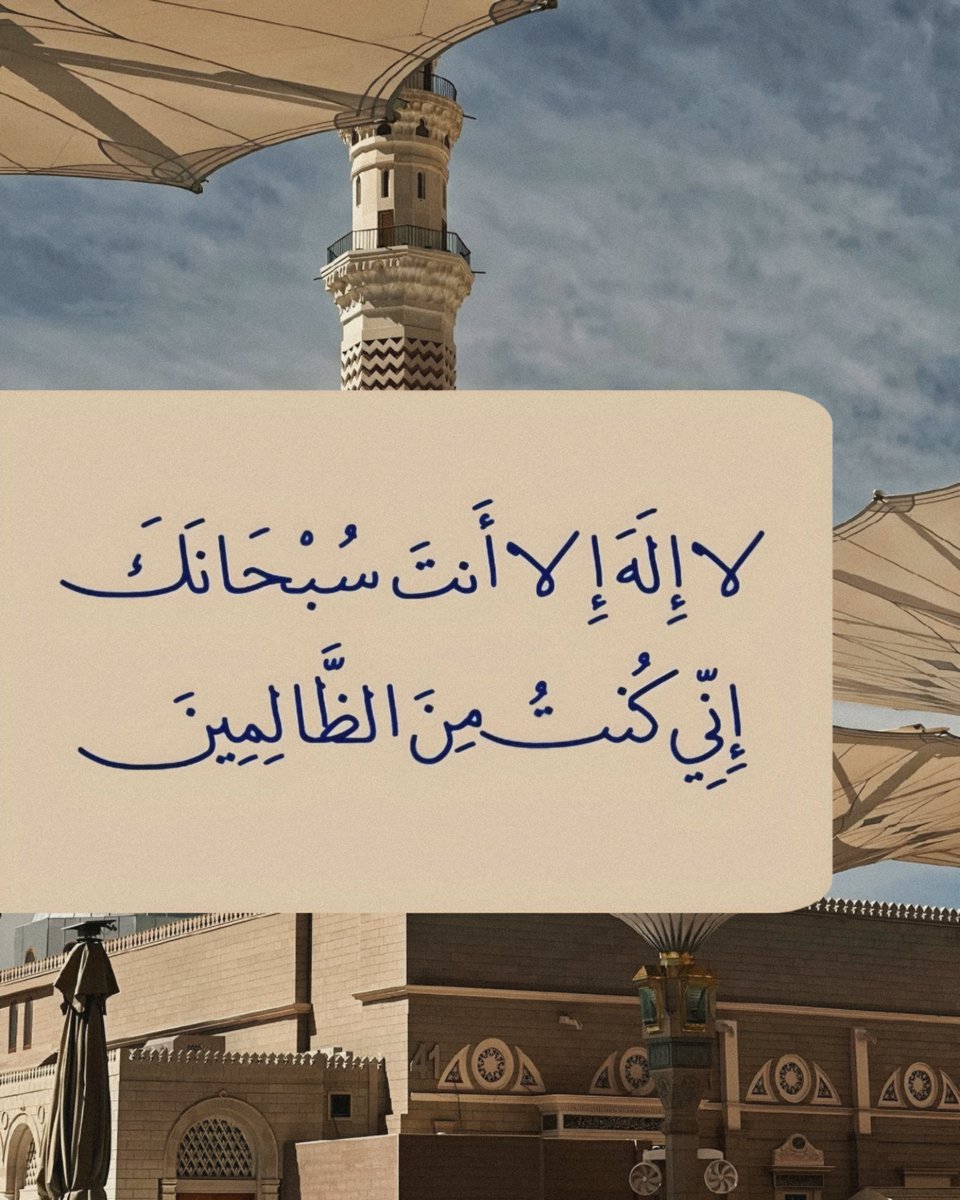 لا إِلَهَ إِلا أَنتَ سُبْحَانَكَ
إِنِّي كُنتُ مِنَ الظَّالِمِينَ
41